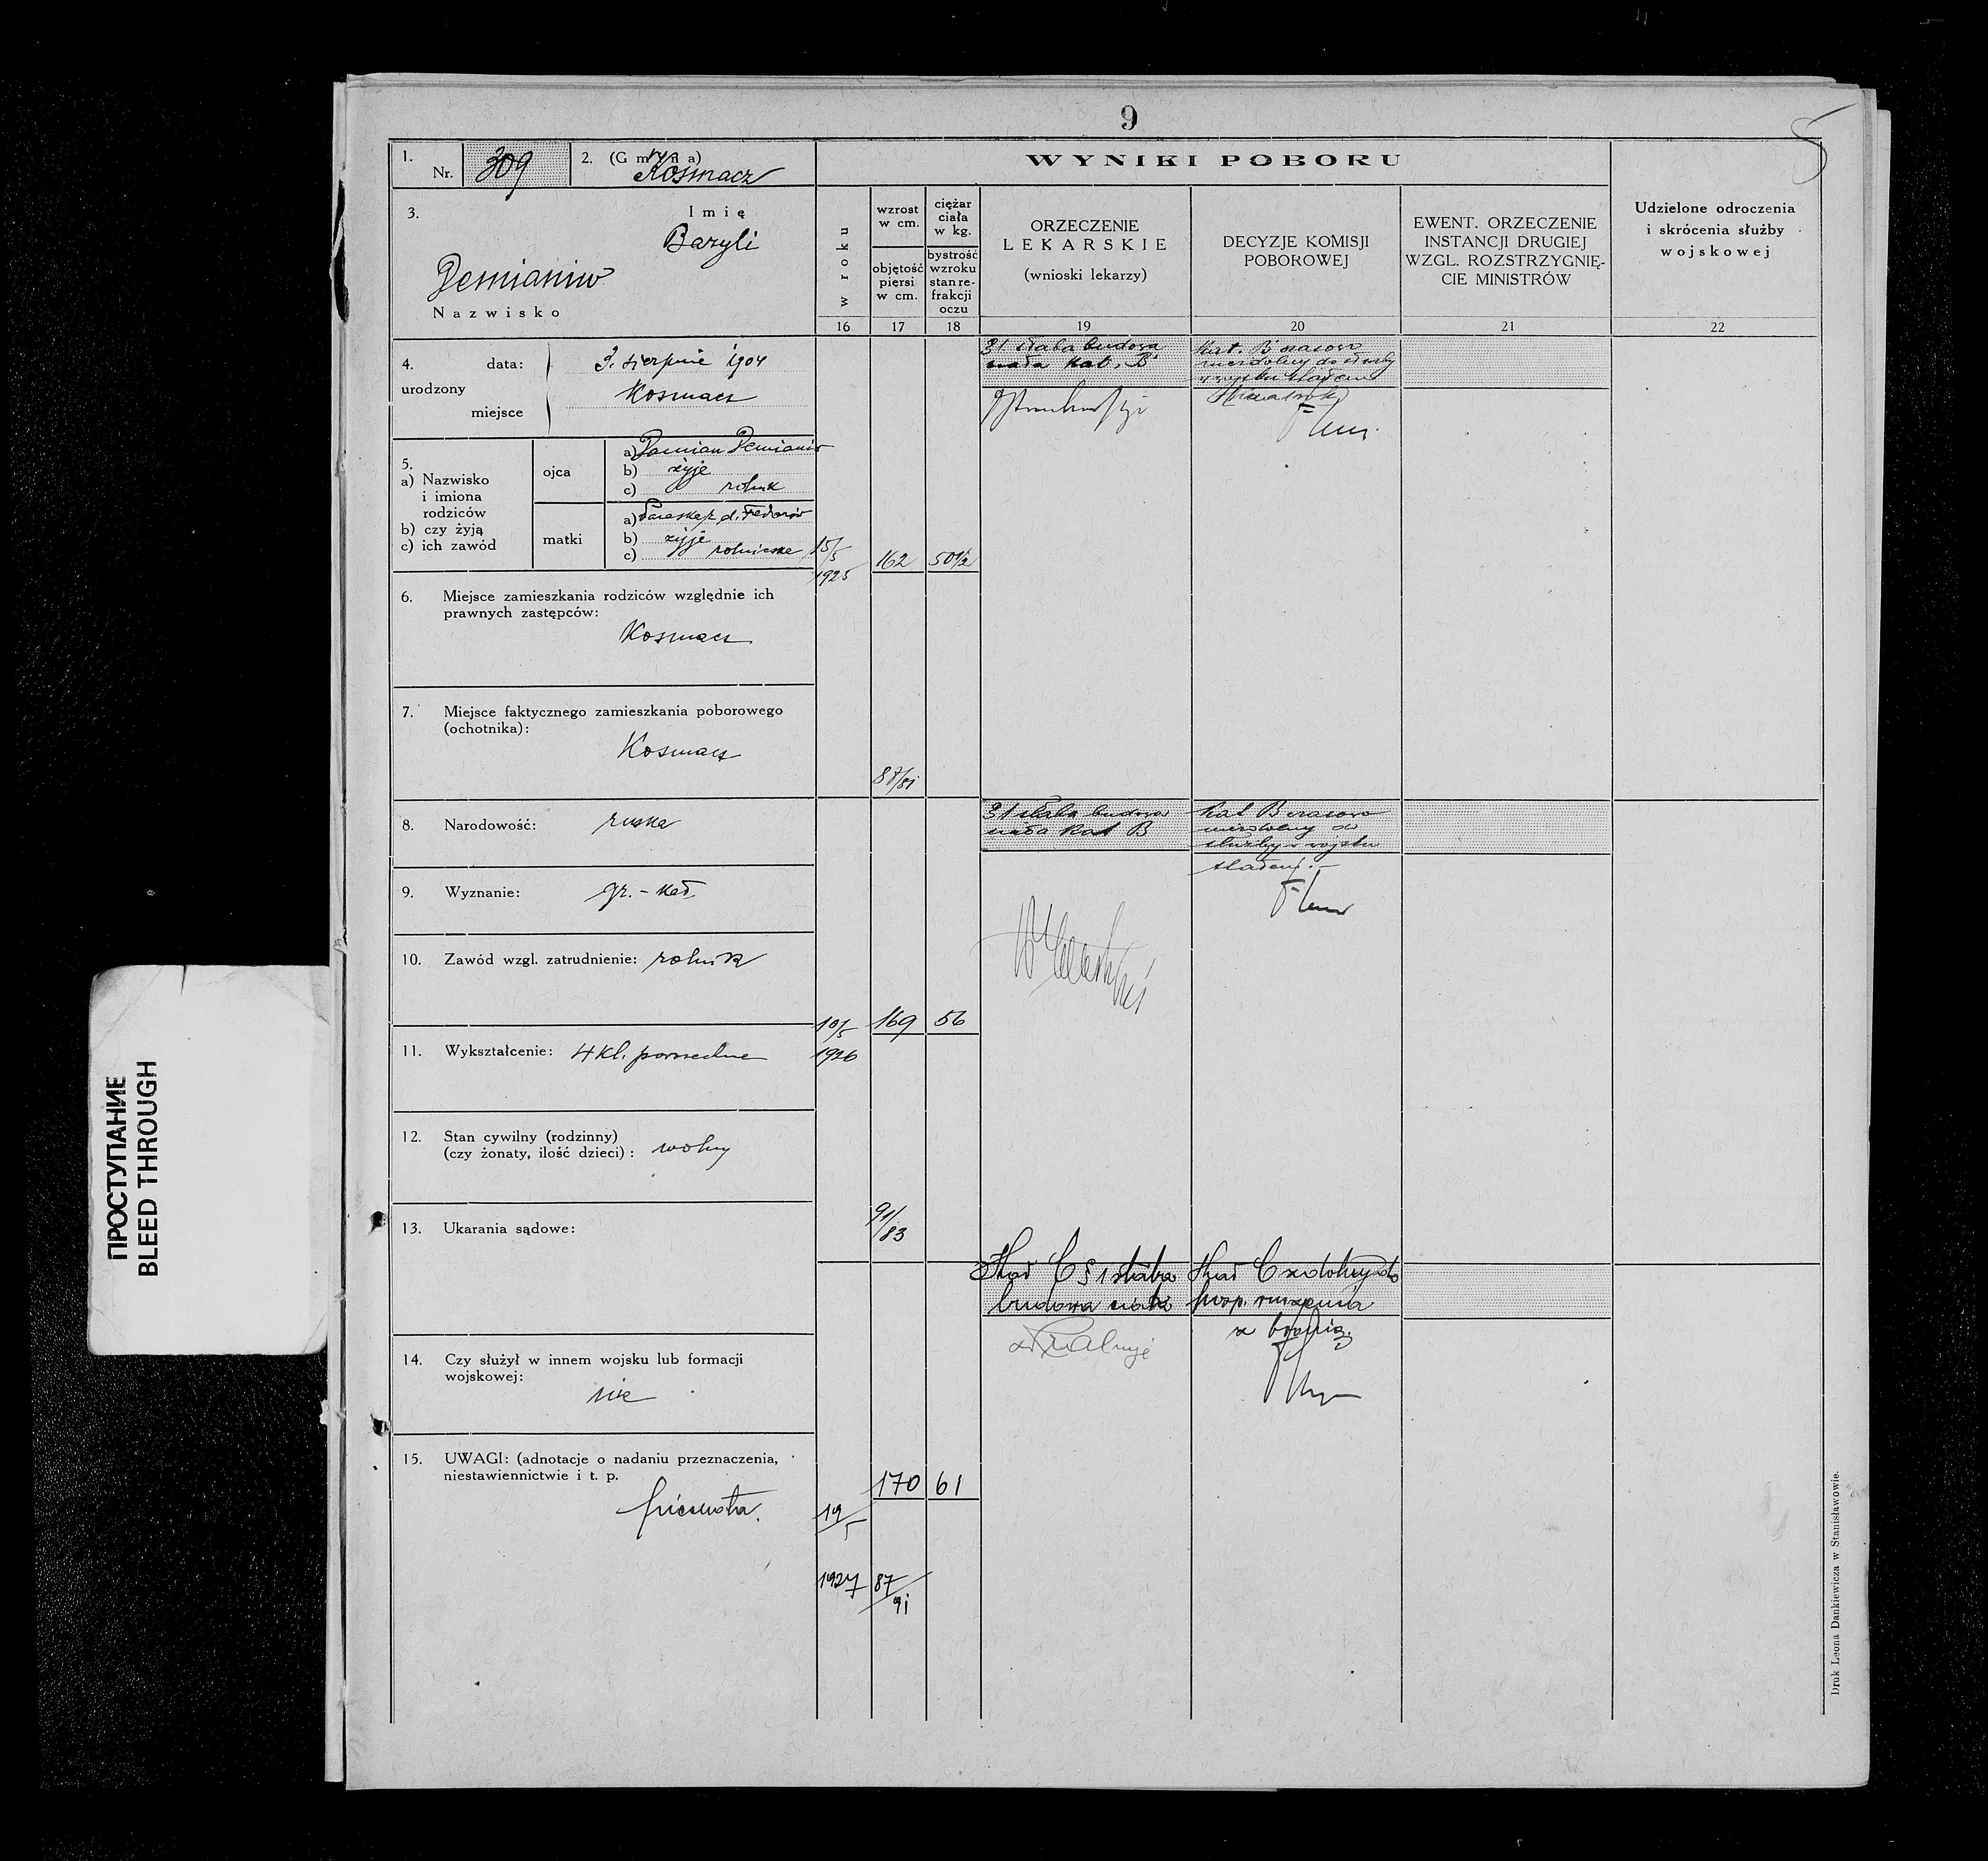 9
5
1.
Nr. 309
2. (Gmina)
Kosmacz
WYNIKI POBORU
3.
Imię
Bazyli
Demianiw
Nazwisko
w roku
wzrost
w cm.
objętość
piersi
w cm.
ciężar
ciała
w kg.
bystrość
wzroku
stan re-
frakcji
oczu
ORZECZENIE
LEKARSKIE
(wnioski lekarzy)
DECYZJE KOMISJI
POBOROWEJ
EWENT. ORZECZENIE
INSTANCJI DRUGIEJ
WZGL. ROZSTRZYGNIĘ-
CIE MINISTRÓW
Udzielone odroczenia
i skrócenia służby
wojskowej
16 17 18 19 20 21 22
4.
urodzony
data: 3. sierpnia 1904
miejsce Kosmacz
31 słaba budowa
ciała kat. B
Kat. B czasowo
niezdolny do służby
w wojsku stałem
5.
a) Nazwisko
i imiona
rodziców
b) czy żyją
c) ich zawód
ojca
a) Damian Demianiw
b) żyje
c) rolnik
matki
a) d. Fedorów
b) żyje
c) rolniczka
15/5
1925
162
50 1/2
87/81
6. Miejsce zamieszkania rodziców względnie ich
prawnych zastępców:
Kosmacz
7. Miejsce faktycznego zamieszkania poborowego
(ochotnika):
Kosmacz
8. Narodowość: ruska
31 słaba budowa
ciała Kat B
Kat B czasowo
niezdolny do
służby w wojsku
stałem.
9. Wyznanie: gr.-kat.
10. Zawód wzgl. zatrudnienie: rolnik
10/5
1926
169
56
91/83
11. Wykształcenie: 4 kl. powszechne
12. Stan cywilny (rodzinny)
(czy żonaty, ilość dzieci): wolny
13. Ukarania sądowe:
Kat C § 1 słaba
budowa ciała
Kat C zdolny do
posp. ruszenia
z bronią.
14. Czy służył w innem wojsku lub formacji
wojskowej:
nie
15. UWAGI: (adnotacje o nadaniu przeznaczenia,
niestawiennictwie i t. p.
piechota.
19/5
1927
170
61
87/91
Druk Leona Dankiewicza w Stanisławowie.
ПРОСТУПАНИЕ
BLEED THROUGH